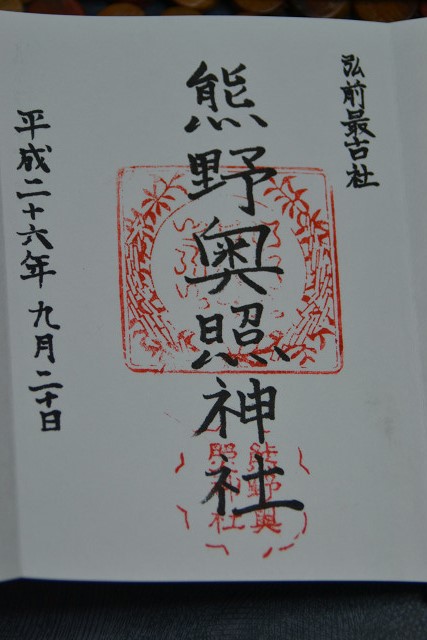 弘前最古社
熊野奥照神社
平成二十六年九月二十日
熊野奥
照神社